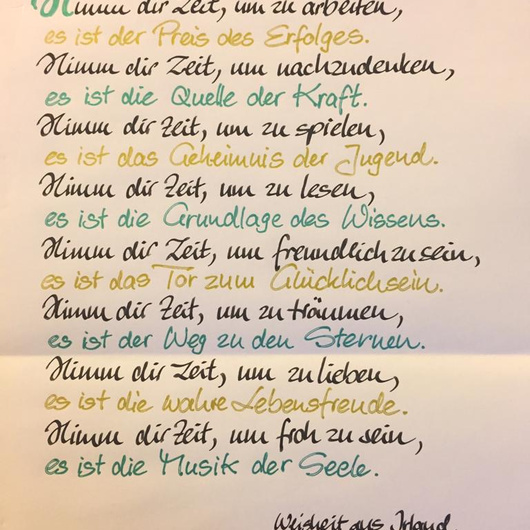 Nimm dir Zeit, um zu arbeiten,
es ist der Preis des Erfolges.
Nimm dir Zeit, um nachzudenken,
es ist die Quelle der Kraft.
Nimm dir Zeit, um zu spielen,
es ist das Geheimnis der Jugend.
Nimm dir Zeit, um zu lesen,
es ist die Grundlage des Wissens.
Nimm dir Zeit, um freundlich zu sein,
es ist das Tor zum Glücklichsein.
Nimm dir Zeit, um zu träumen,
es ist der Weg zu den Sternen.
Nimm dir Zeit, um zu lieben,
es ist die wahre Lebensfreude.
Nimm dir Zeit, um froh zu sein,
es ist die Musik der Seele.
Weisheit aus Irland